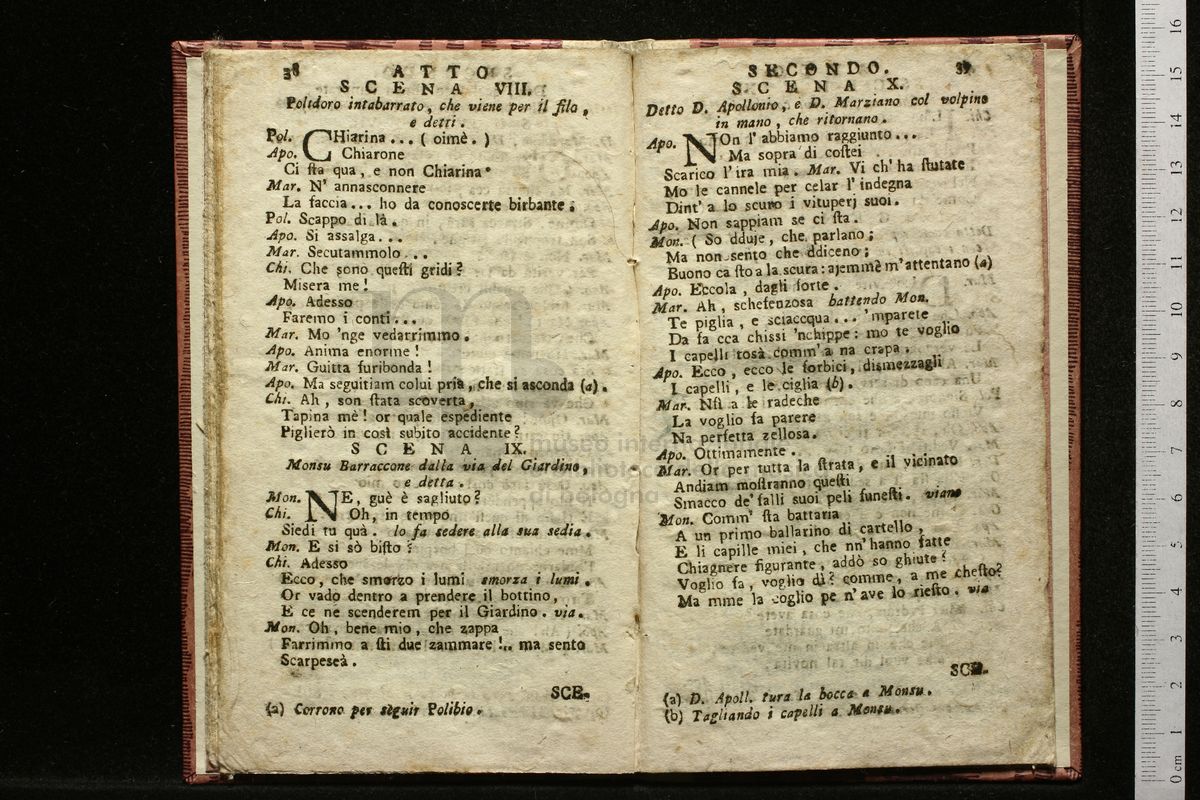 38 ATTO
SCENA VIII.
Polidoro intabarrato, che viene per il filo,
e detti.
Pol. CHiarina... ( oimè. )
Apo. Chiarone
Ci sta qua, e non Chiarina.
Mar. N' annasconnere
La faccia... ho da conoscerte birbante.
Pol. Scappo di là.
Apo. Si assalga...
Mar. Secutammolo...
Chi. Che sono questi gridi?
Misera me!
Apo. Adesso
Faremo i conti...
Mar. Mo 'nge vedarrimmo.
Apo. Anima enorme!
Mar. Guitta furibonda!
Apo. Ma seguitiam colui pria, che si asconda (a).
Chi. Ah, son stata scoverta,
Tapina mè! or quale espediente
Piglierò in così subito accidente?
SCENA IX.
Monsu Barraccone dalla via del Giardino,
e detta.
Mon. NE, guè è sagliuto?
Chi. Oh, in tempo
Siedi tu quà. lo fa sedere alla sua sedia.
Mon. E si sò bisto?
Chi. Adesso
Ecco, che smorzo i lumi smorza i lumi.
Or vado dentro a prendere il bottino,
E ce ne scenderem per il Giardino. via.
Mon. Oh, bene mio, che zappa
Farrimmo a sti due zammare!.. ma sento
Scarpeseà.
SCE-
(a) Corrono per seguir Polibio.
SECONDO. 39
SCENA X.
Detto D. Apollonio, e D. Marziano col volpino
in mano, che ritornano.
Apo. NOn l' abbiamo raggiunto...
Ma sopra di costei
Scarico l' ira mia. Mar. Vi ch' ha stutate
Mo le cannele per celar l' indegna
Dint' a lo scuro i vituperj suoi.
Apo. Non sappiam se ci sta.
Mon. ( So dduje, che parlano;
Ma non sento che ddiceno;
Buono ca sto a la scura: ajemmè m'attentano (a)
Apo. Eccola, dagli forte.
Mar. Ah, schefenzosa battendo Mon.
Te piglia, e sciaccqua... 'mparete
Da fa cca chissi 'nchippe: mo te voglio
I capelli tosà comm' a na crapa.
Apo. Ecco, ecco le forbici, dismezzagli
I capelli, e le ciglia (b).
Mar. Nsi a le radeche
La voglio fa parere
Na perfetta zellosa.
Apo. Ottimamente.
Mar. Or per tutta la strata, e il vicinato
Andiam mostranno questi
Smacco de' falli suoi peli funesti. viano
Mon. Comm' sta battaria
A un primo ballarino di cartello,
E li capille miei, che nn' hanno fatte
Chiagnere figurante, addò so ghiute?
Voglio fa, voglio dì? comme, a me chesto?
Ma mme la coglio pe n' ave lo riesto. via
SCE-
(a) D. Apoll. tura la bocca a Monsu.
(b) Tagliando i capelli a Monsu.